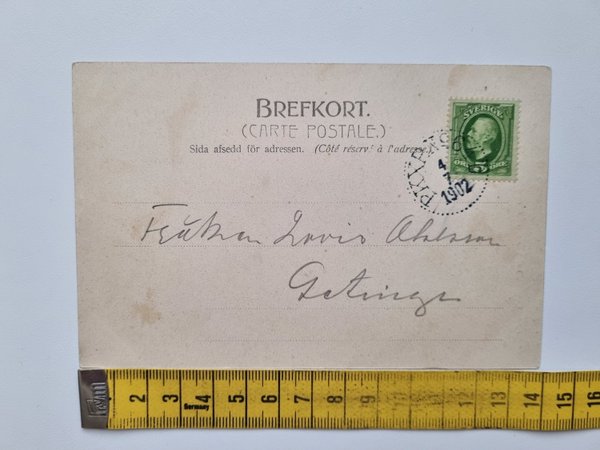 BREFKORT.
(CARTE POSTALE.)
Sida afsedd för adressen. (Côté réservé à l'adresse
SVERIGE
5
ÖRE
PKXP Nº
4
7
1902
Fröken Lovis Ohlsson
Getinge
2 3 4 5 6 7 8 9 10 11 12 13 14 15 16
Germany